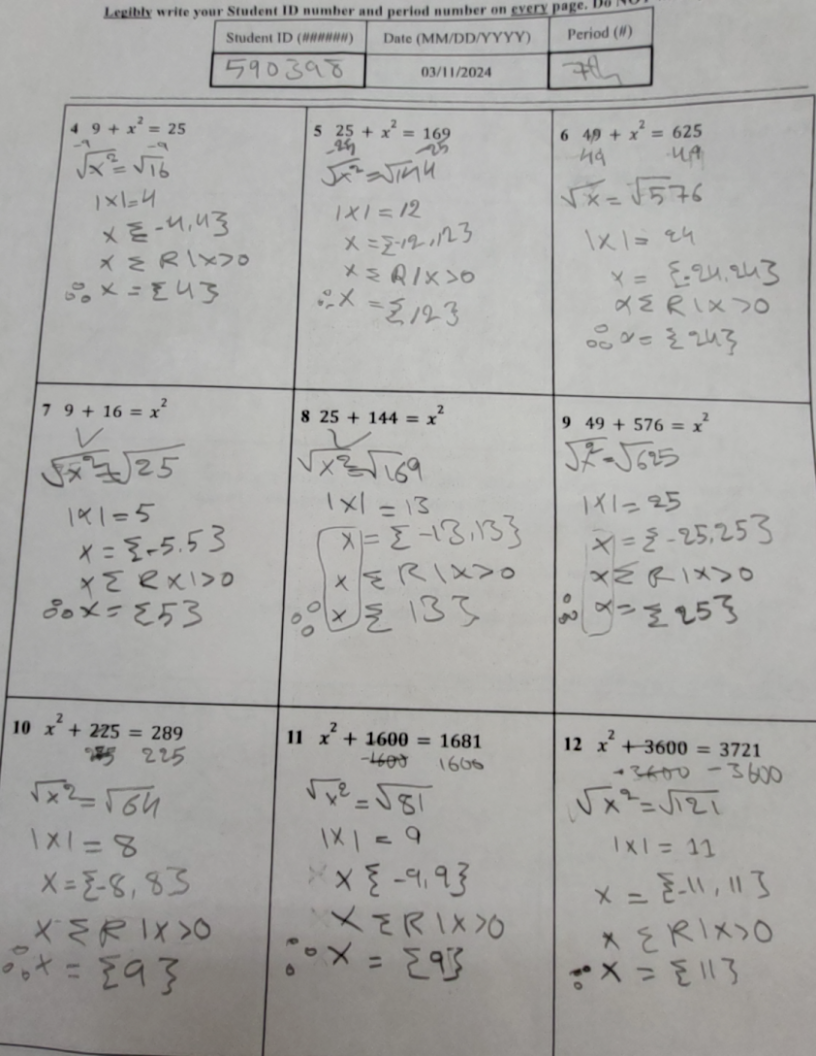 Legibly write your Student ID number and period number on every page. Do NO
Student ID (######) Date (MM/DD/YYYY) Period (#)
590398 03/11/2024 7th
4 9 + x² = 25
-9 -9
√x² = √16
|x|=4
x Σ -4,4}
x Σ R | x>0
∴ x = {4}
5 25 + x² = 169
-25 -25
√x² = √144
|x| = 12
x = {-12,12}
x Σ R | x>0
∴ x = {12}
6 49 + x² = 625
-49 -49
√x = √576
|x| = 24
x = {-24,24}
x Σ R | x>0
∴ x = {24}
7 9 + 16 = x²
√x² = √25
|x| = 5
x = {-5,5}
x Σ R x|>0
∴ x = {5}
8 25 + 144 = x²
√x² = √169
|x| = 13
x = {-13,13}
x Σ R | x>0
∴ x { 13}
9 49 + 576 = x²
√x² = √625
|x| = 25
x = {-25,25}
x Σ R | x>0
∴ x = {25}
10 x² + 225 = 289
225 225
√x² = √64
|x| = 8
x = {-8,8}
x Σ R | x>0
∴ x = {9}
11 x² + 1600 = 1681
-1600 1600
√x² = √81
|x| = 9
x { -9,9}
x Σ R | x>0
∴ x = {9}
12 x² + 3600 = 3721
-3600 -3600
√x² = √121
|x| = 11
x = {-11,11}
x Σ R | x>0
∴ x = {11}